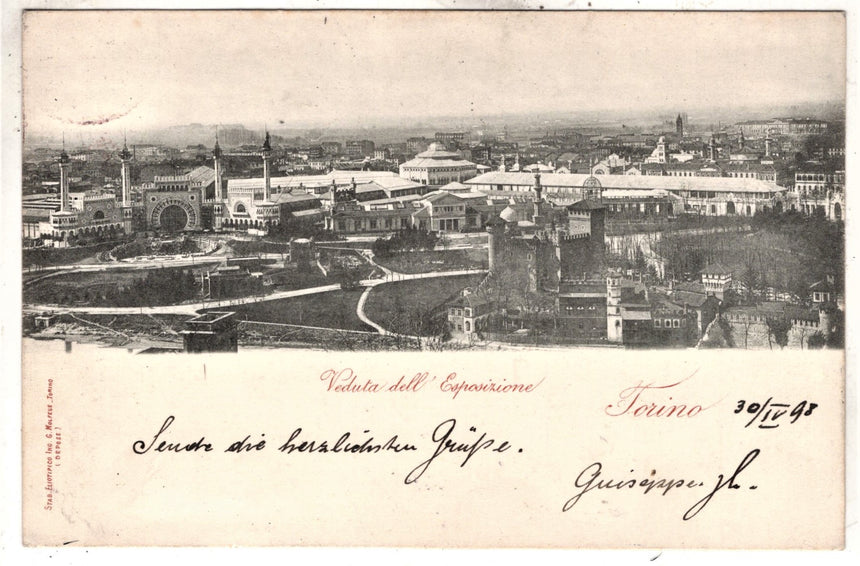 Veduta dell' Esposizione
Torino 30/IV 98
Sende die herzlichsten Grüße.
Guiseppe
STAB. ELIOTIPICO ING. G. MOLFESE_TORINO
(DEPOSÉ)